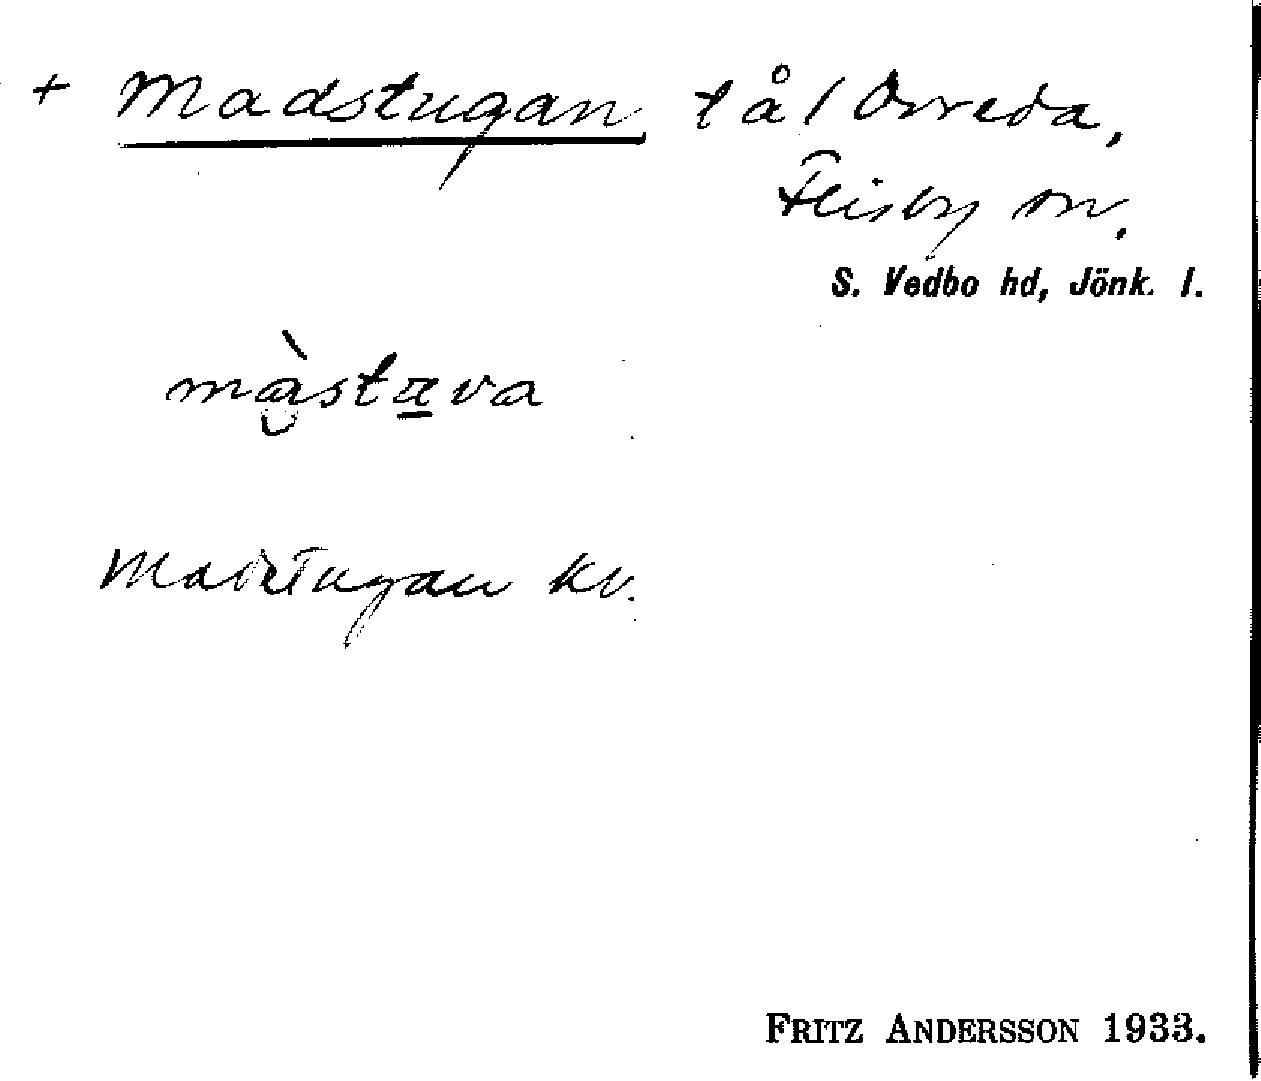 + Madstugan t å / Orreda,
Flisby sn.
S. Vedbo hd, Jönk. l.
màstæva
Madstugan kv.
FRITZ ANDERSSON 1933.